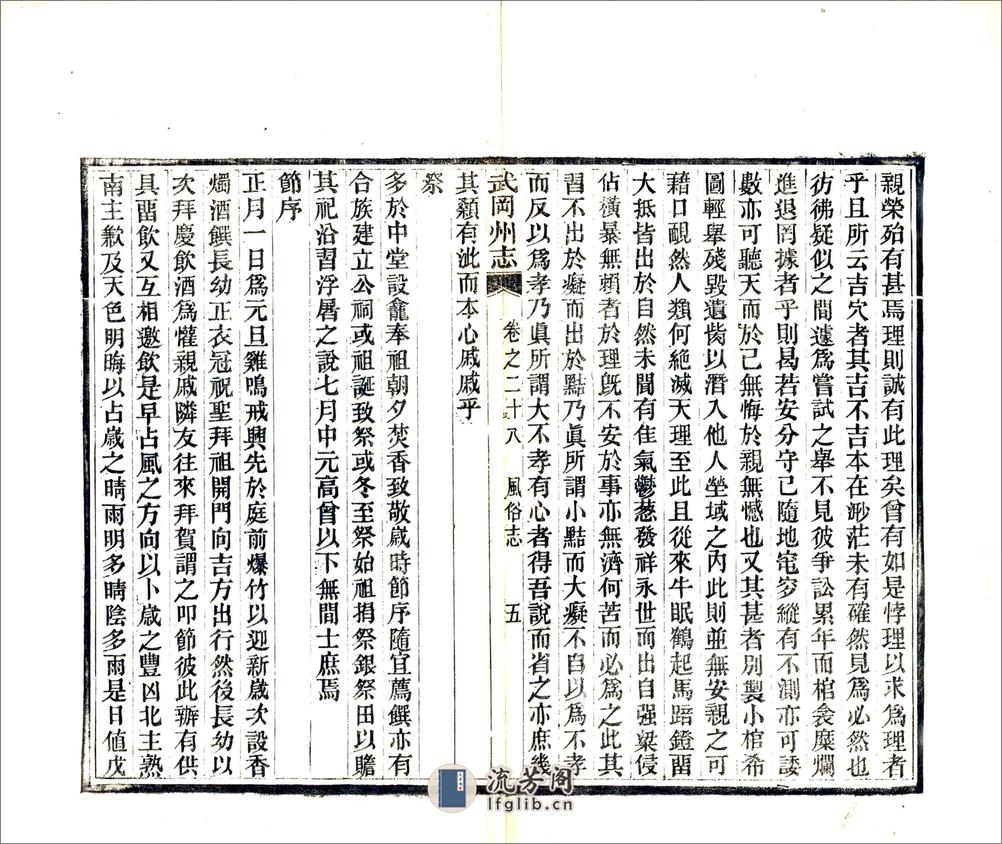 親榮殆有甚焉理則誠有此理矣曾有如是悖理以求爲理者
乎且所云吉穴者其吉不吉本在渺茫未有確然見爲必然也
彷彿疑似之間遽爲嘗試之舉不見彼爭訟累年而棺衾糜爛
進退罔據者乎則曷若安分守己隨地窀穸縱有不測亦可諉
數亦可聽天而於己無悔於親無憾也又其甚者別製小棺希
圖輕舉殘毀遺胔以潛入他人塋域之內此則並無安親之可
藉口覥然人類何絶滅天理至此且從來牛眠鶴起馬踣鐙畱
大抵皆出於自然未聞有佳氣鬱葱發祥永世而出自强梁侵
佔橫暴無賴者於理旣不安於事亦無濟何苦而必爲之此其
習不出於癡而出於黠乃眞所謂小黠而大癡不自以爲不孝
而反以爲孝乃眞所謂大不孝有心者得吾說而省之亦庶幾
武岡州志 卷之二十八 風俗志 五
其顙有泚而本心戚戚乎
祭
多於中堂設龕奉祖朝夕焚香致敬歲時節序隨宜薦饌亦有
合族建立公祠或祖誕致祭或冬至祭始祖捐祭銀祭田以贍
其祀沿習浮屠之說七月中元高曾以下無間士庶焉
節序
正月一日爲元旦雞鳴戒興先於庭前爆竹以迎新歲次設香
燭酒饌長幼正衣冠祝聖拜祖開門向吉方出行然後長幼以
次拜慶飲酒爲懽親戚隣友往來拜賀謂之叩節彼此辦有供
具畱飲又互相邀飲是早占風之方向以卜歲之豐凶北主熟
南主歉及天色明晦以占歲之晴雨明多晴陰多雨是日值戊
流芳阁
lfglib.cn